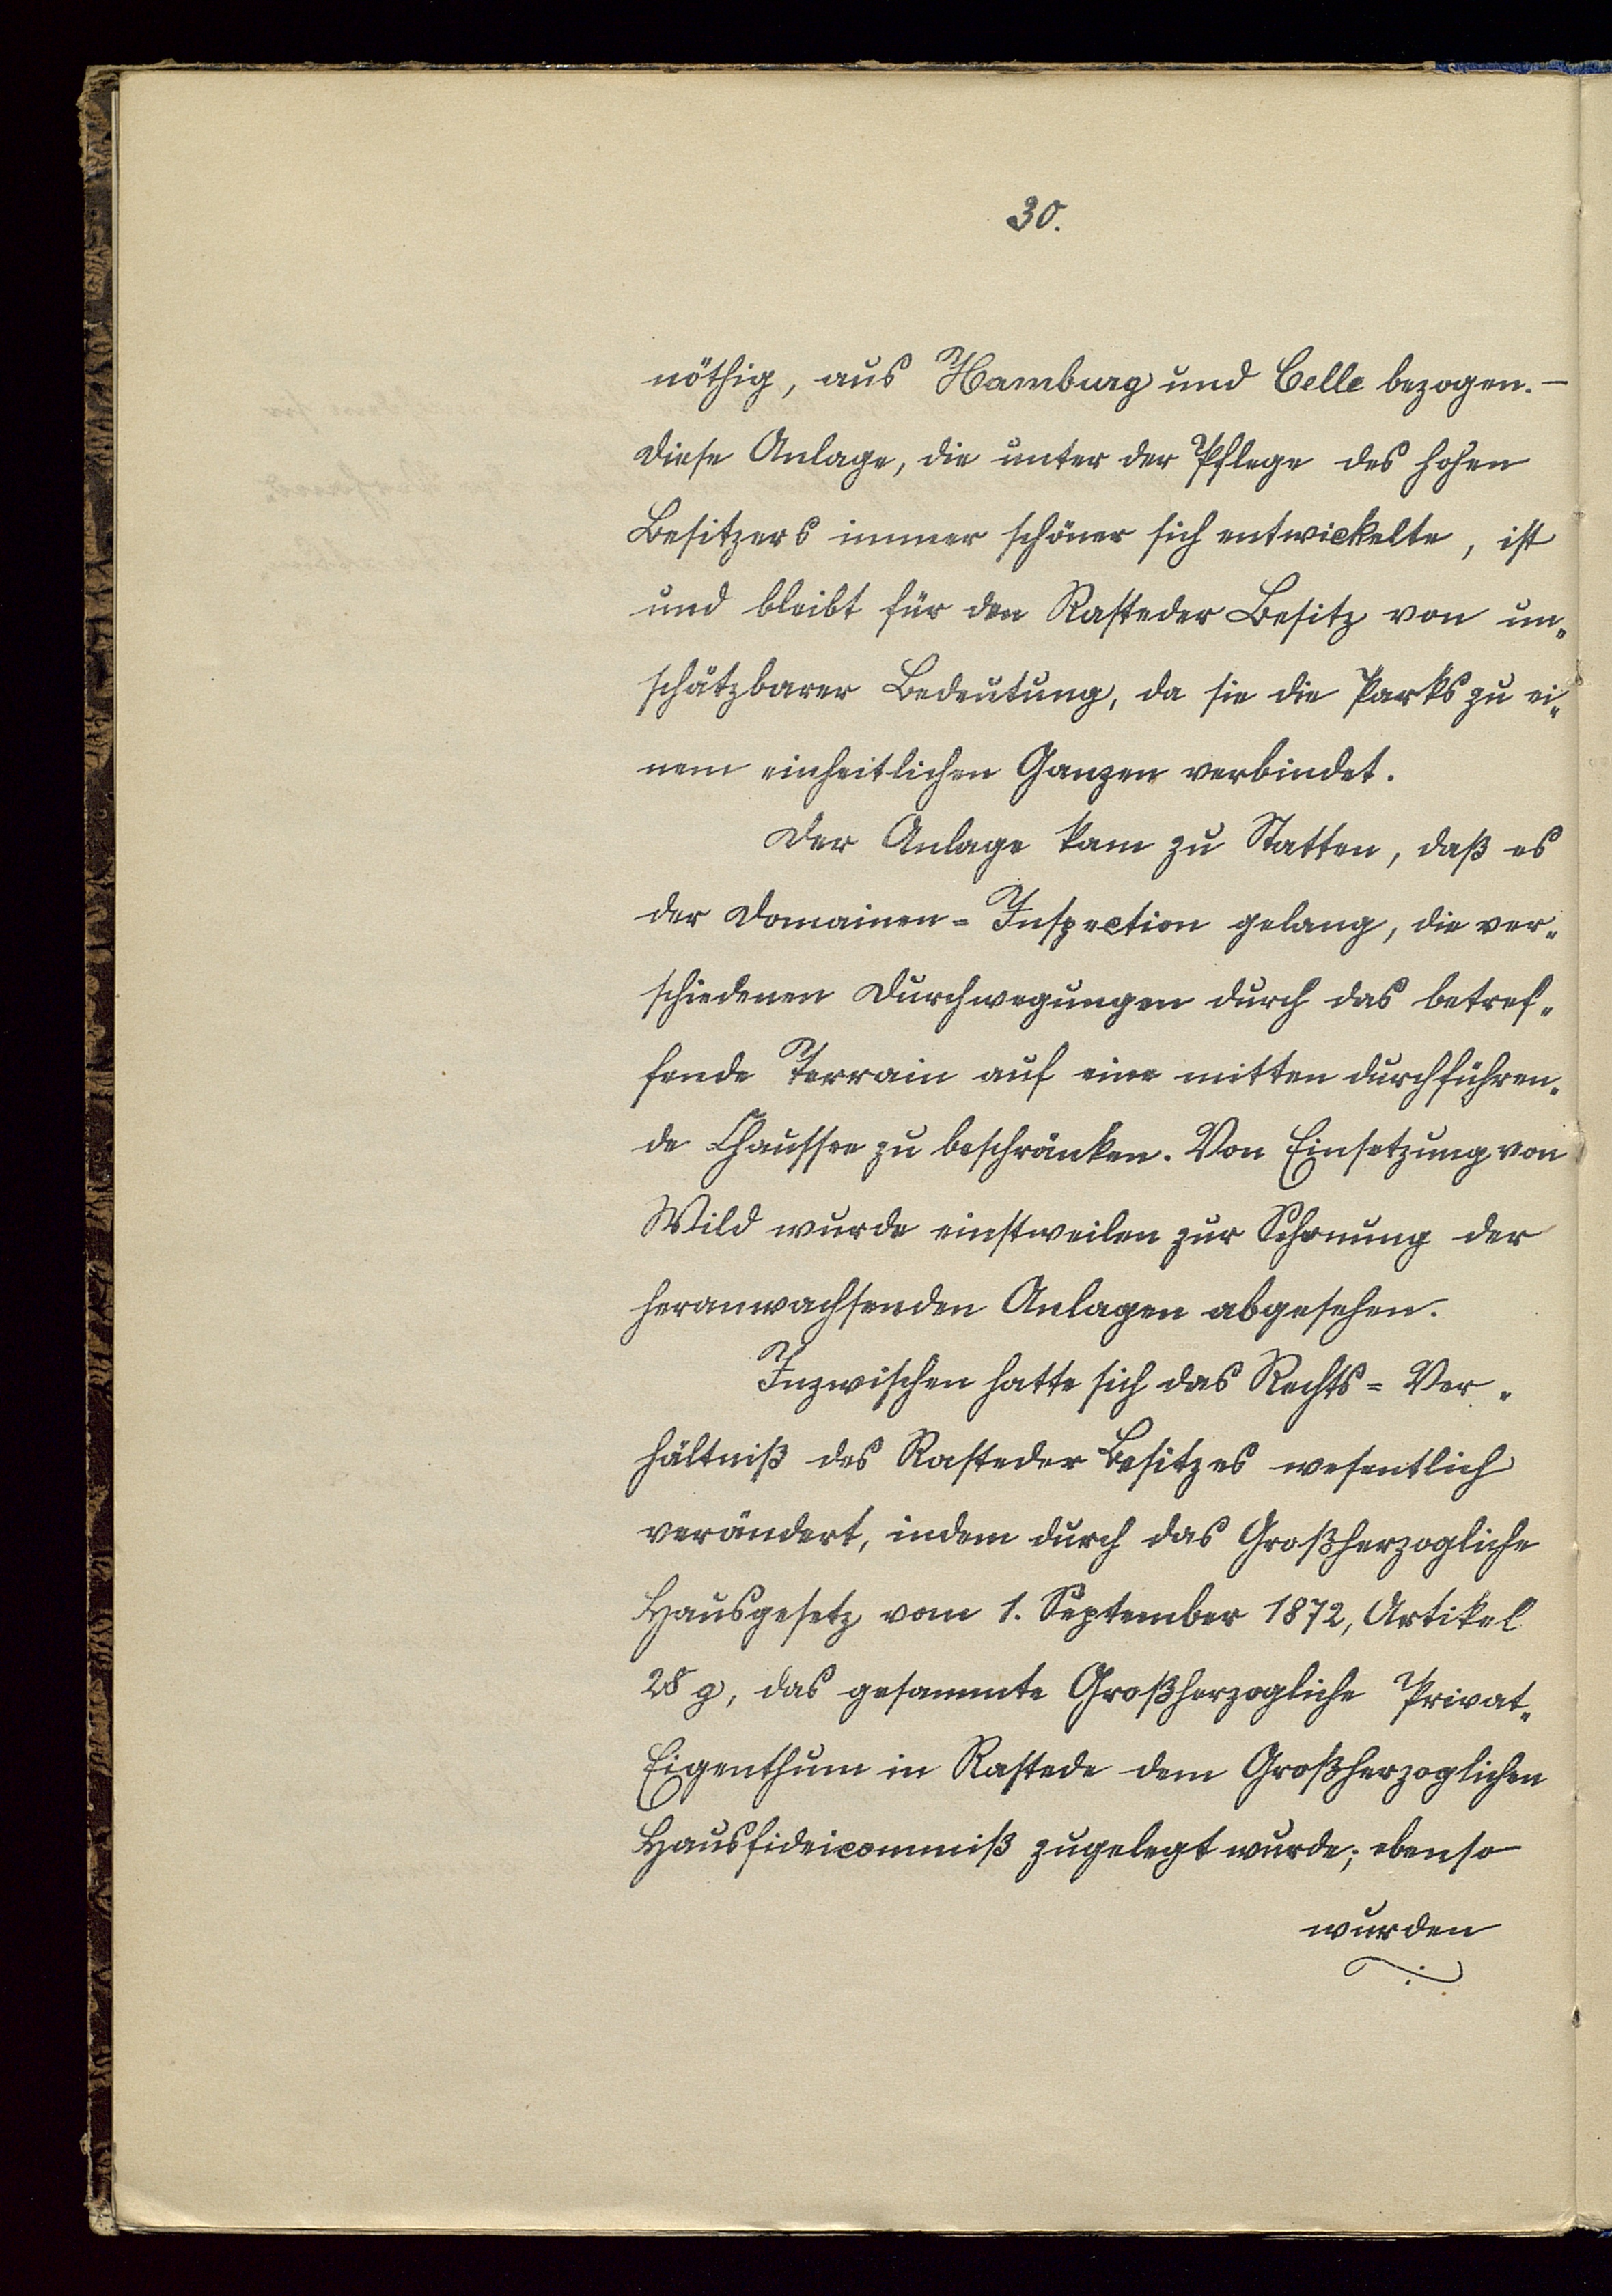 30.
nöthig, aus Hamburg und Celle bezogen.—
Diese Anlage, die unter der Pflege des hohen
Besitzers immer schöner sich entwickelte, ist
und bleibt für den Rasteder Besitz von un„
schätzbarer Bedeutung, da sie die Parks zu ei„
nem einheitlichen Ganzen verbindet.
Der Anlage kam zu Statten, daß es
der Domainen=Inspection gelang, die ver„
schiedenen Durchwegungen durch das betref„
fende Terrain auf eine mitten durchführen„
de Chaussee zu beschränken. Von Einsetzung von
Wild wurde einstweilen zur Schonung der
heranwachsenden Anlagen abgesehen.
Inzwischen hatte sich das Rechts=Ver„
hältniß des Rasteder Besitzes wesentlich
verändert, indem durch das Großherzogliche
Hausgesetz vom 1. September 1872, Artikel
28 g, das gesammte Großherzogliche Privat„
Eigenthum in Rastede dem Großherzoglichen
Hausfideicommiß zugelegt wurde; ebenso
wurden